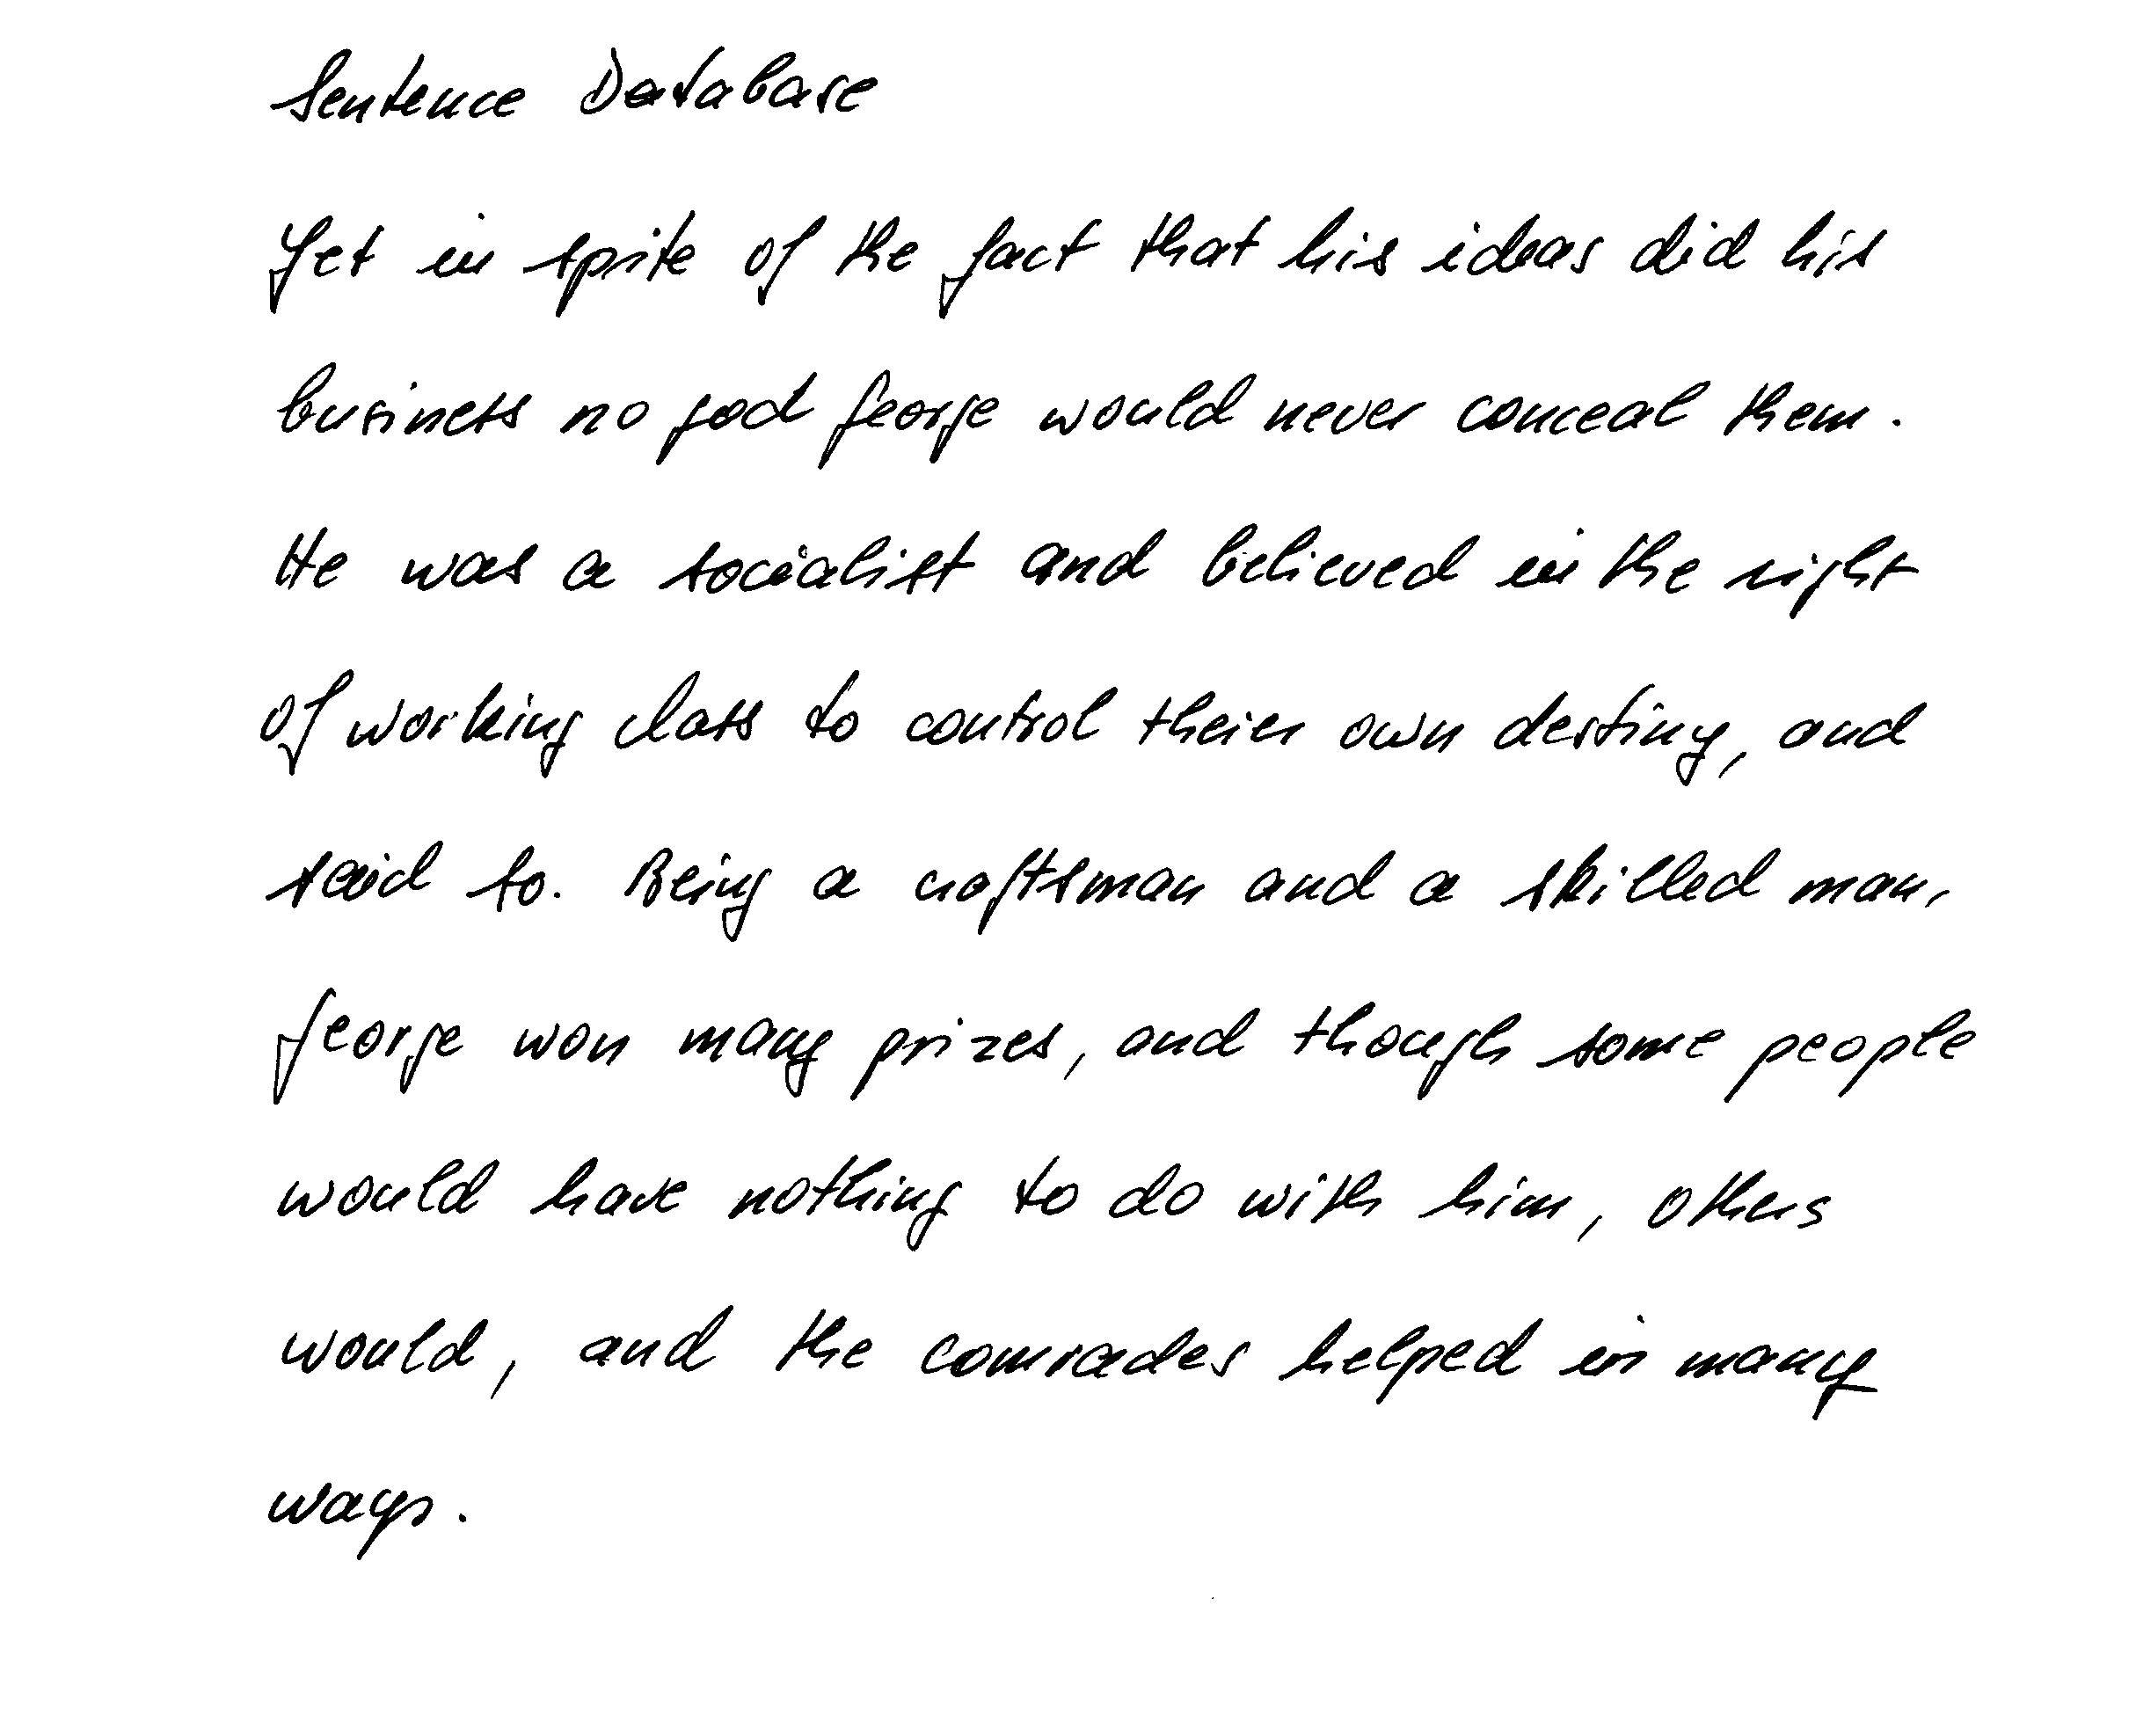 Sentence Database
Yet in sprite of the fact that his ideas did his
business no god George would never conceal them.
He was a socialist and believed in the right
of working class to control their own destiny, and
said so. Being a craftsman and a skilled man,
George won many prizes, and though some people
would have nothing to do with him, others
would, and the comrades helped in many
ways.